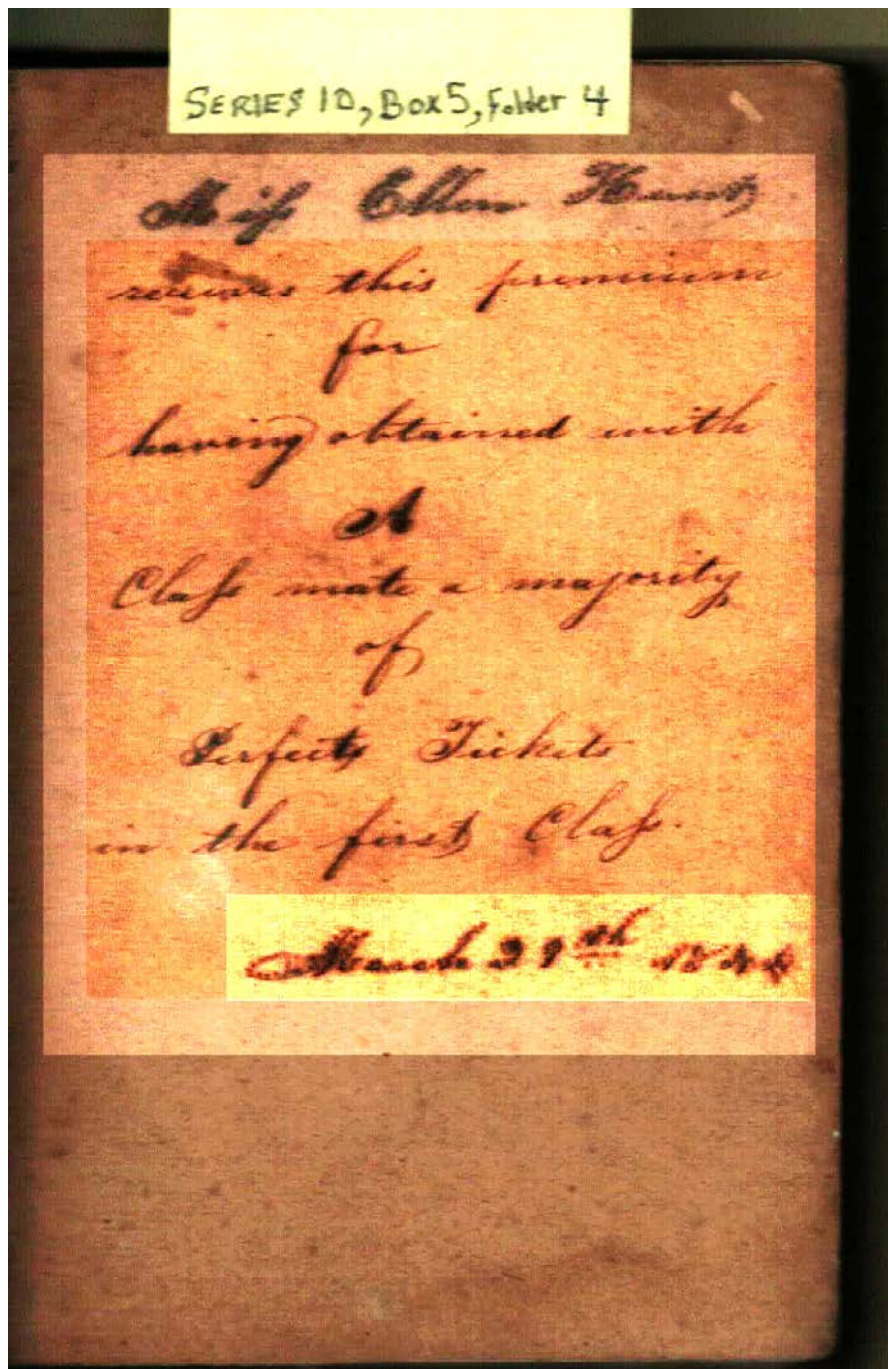 SERIES 1D, Box 5, Folder 4
Miss Ellen Hunt
receives this premium
for
having obtained with
A
Class mate a majority
of
Perfect Tickets
in the first Class.
March 29th 1844